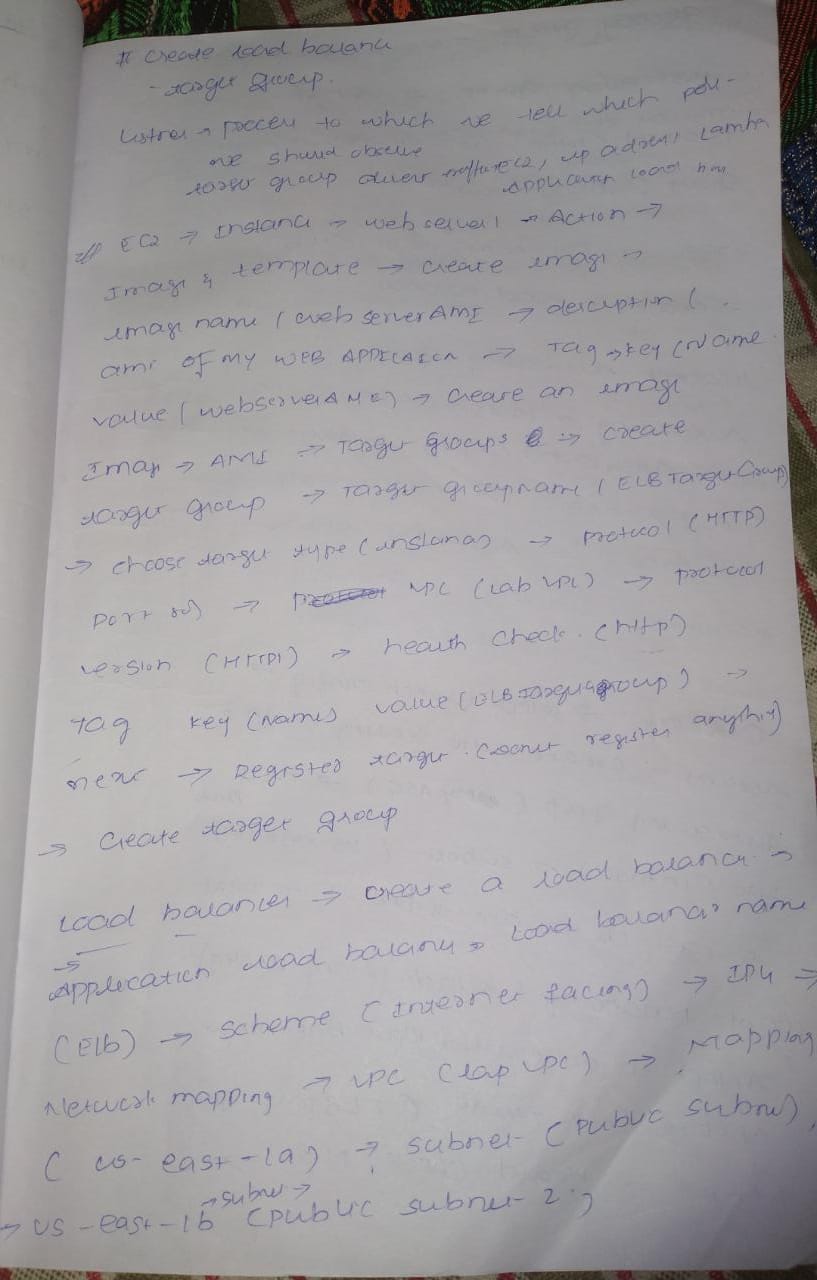 # Create load balanc
- target group.
Listner → process to which we tell which port
we should observe
target group divert traffic EC2, ip adress, Lambda
Application load
EC2 → Instance → web server 1 → Action →
Image & template → create image →
image name (web server AMI → description (
ami of my WEB APPLICAICN → Tag → key (Name
value (webserverAMI) → Create an image
Image → AMI → Target groups → create
target group → Target group name (ELB Target Group)
→ choose target type (instances) → Protocol (HTTP)
port 80) → VPC (Lab VPC) → protocol
version (HTTP1) → health check. (http)
Tag key (Name) value (ELB Target group) →
next → Register target. (donot register anything)
→ Create target group
Load balancer → create a load balancer →
→ Application load balancer → Load balancer name
(Elb) → scheme (internet facing) → IP4 →
Network mapping → VPC (lap vpc) → Mapping
( us-east-1a) → subnet (Public subnet),
→ us-east-1b → subnet → (public subnet 2)